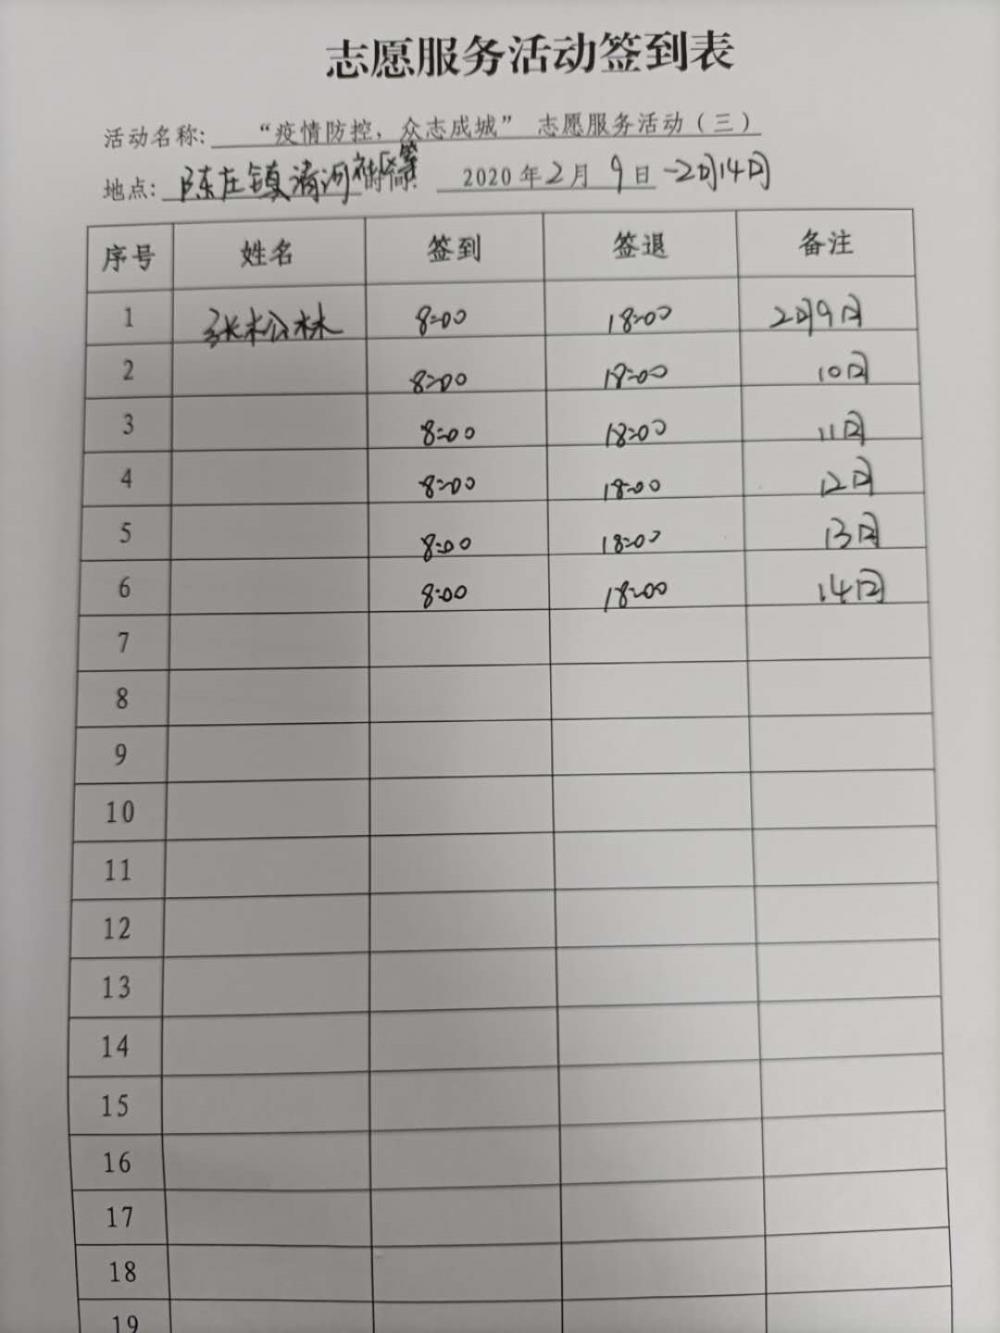 志愿服务活动签到表
活动名称: “疫情防控，众志成城” 志愿服务活动（三）
地点: 陈庄镇清河社区等 时间: 2020年2月9日-2月14日
序号 姓名 签到 签退 备注
1 张松林 8:00 18:00 2月9日
2 8:00 18:00 10日
3 8:00 18:00 11日
4 8:00 18:00 12日
5 8:00 18:00 13日
6 8:00 18:00 14日
7
8
9
10
11
12
13
14
15
16
17
18
19